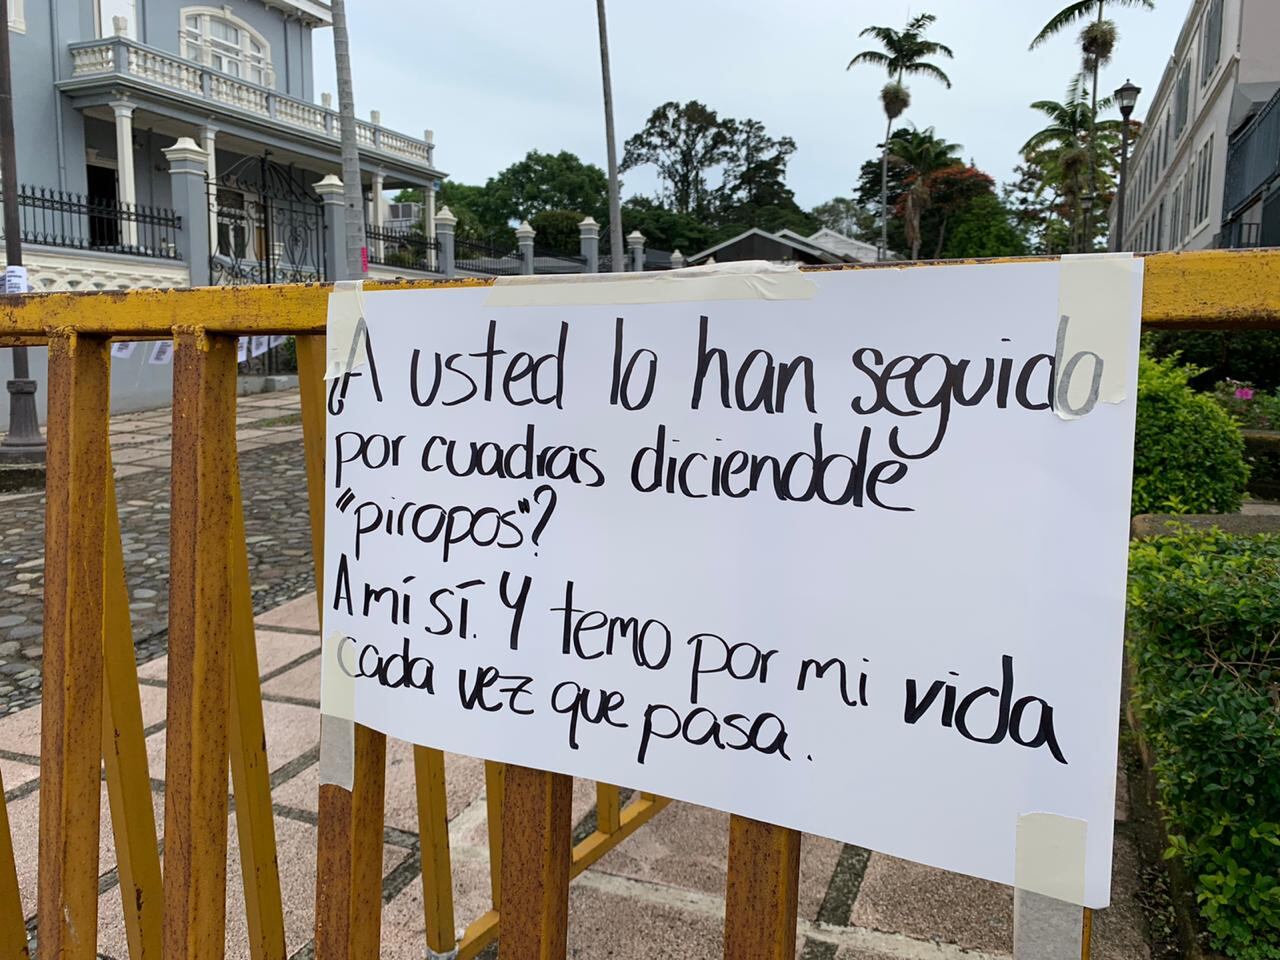 ¿A usted lo han seguido
por cuadras diciendole
"piropos"?
A mí sí. Y temo por mi vida
cada vez que pasa.